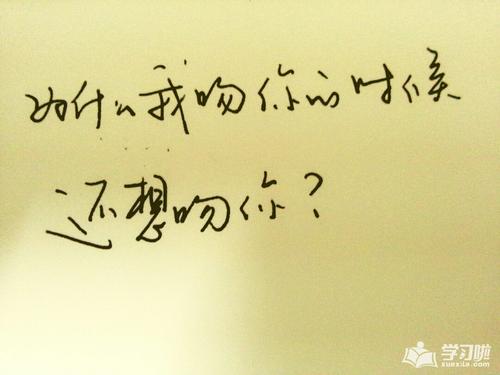 为什么我吻你的时候
还想吻你?
学习啦
xuexila.com